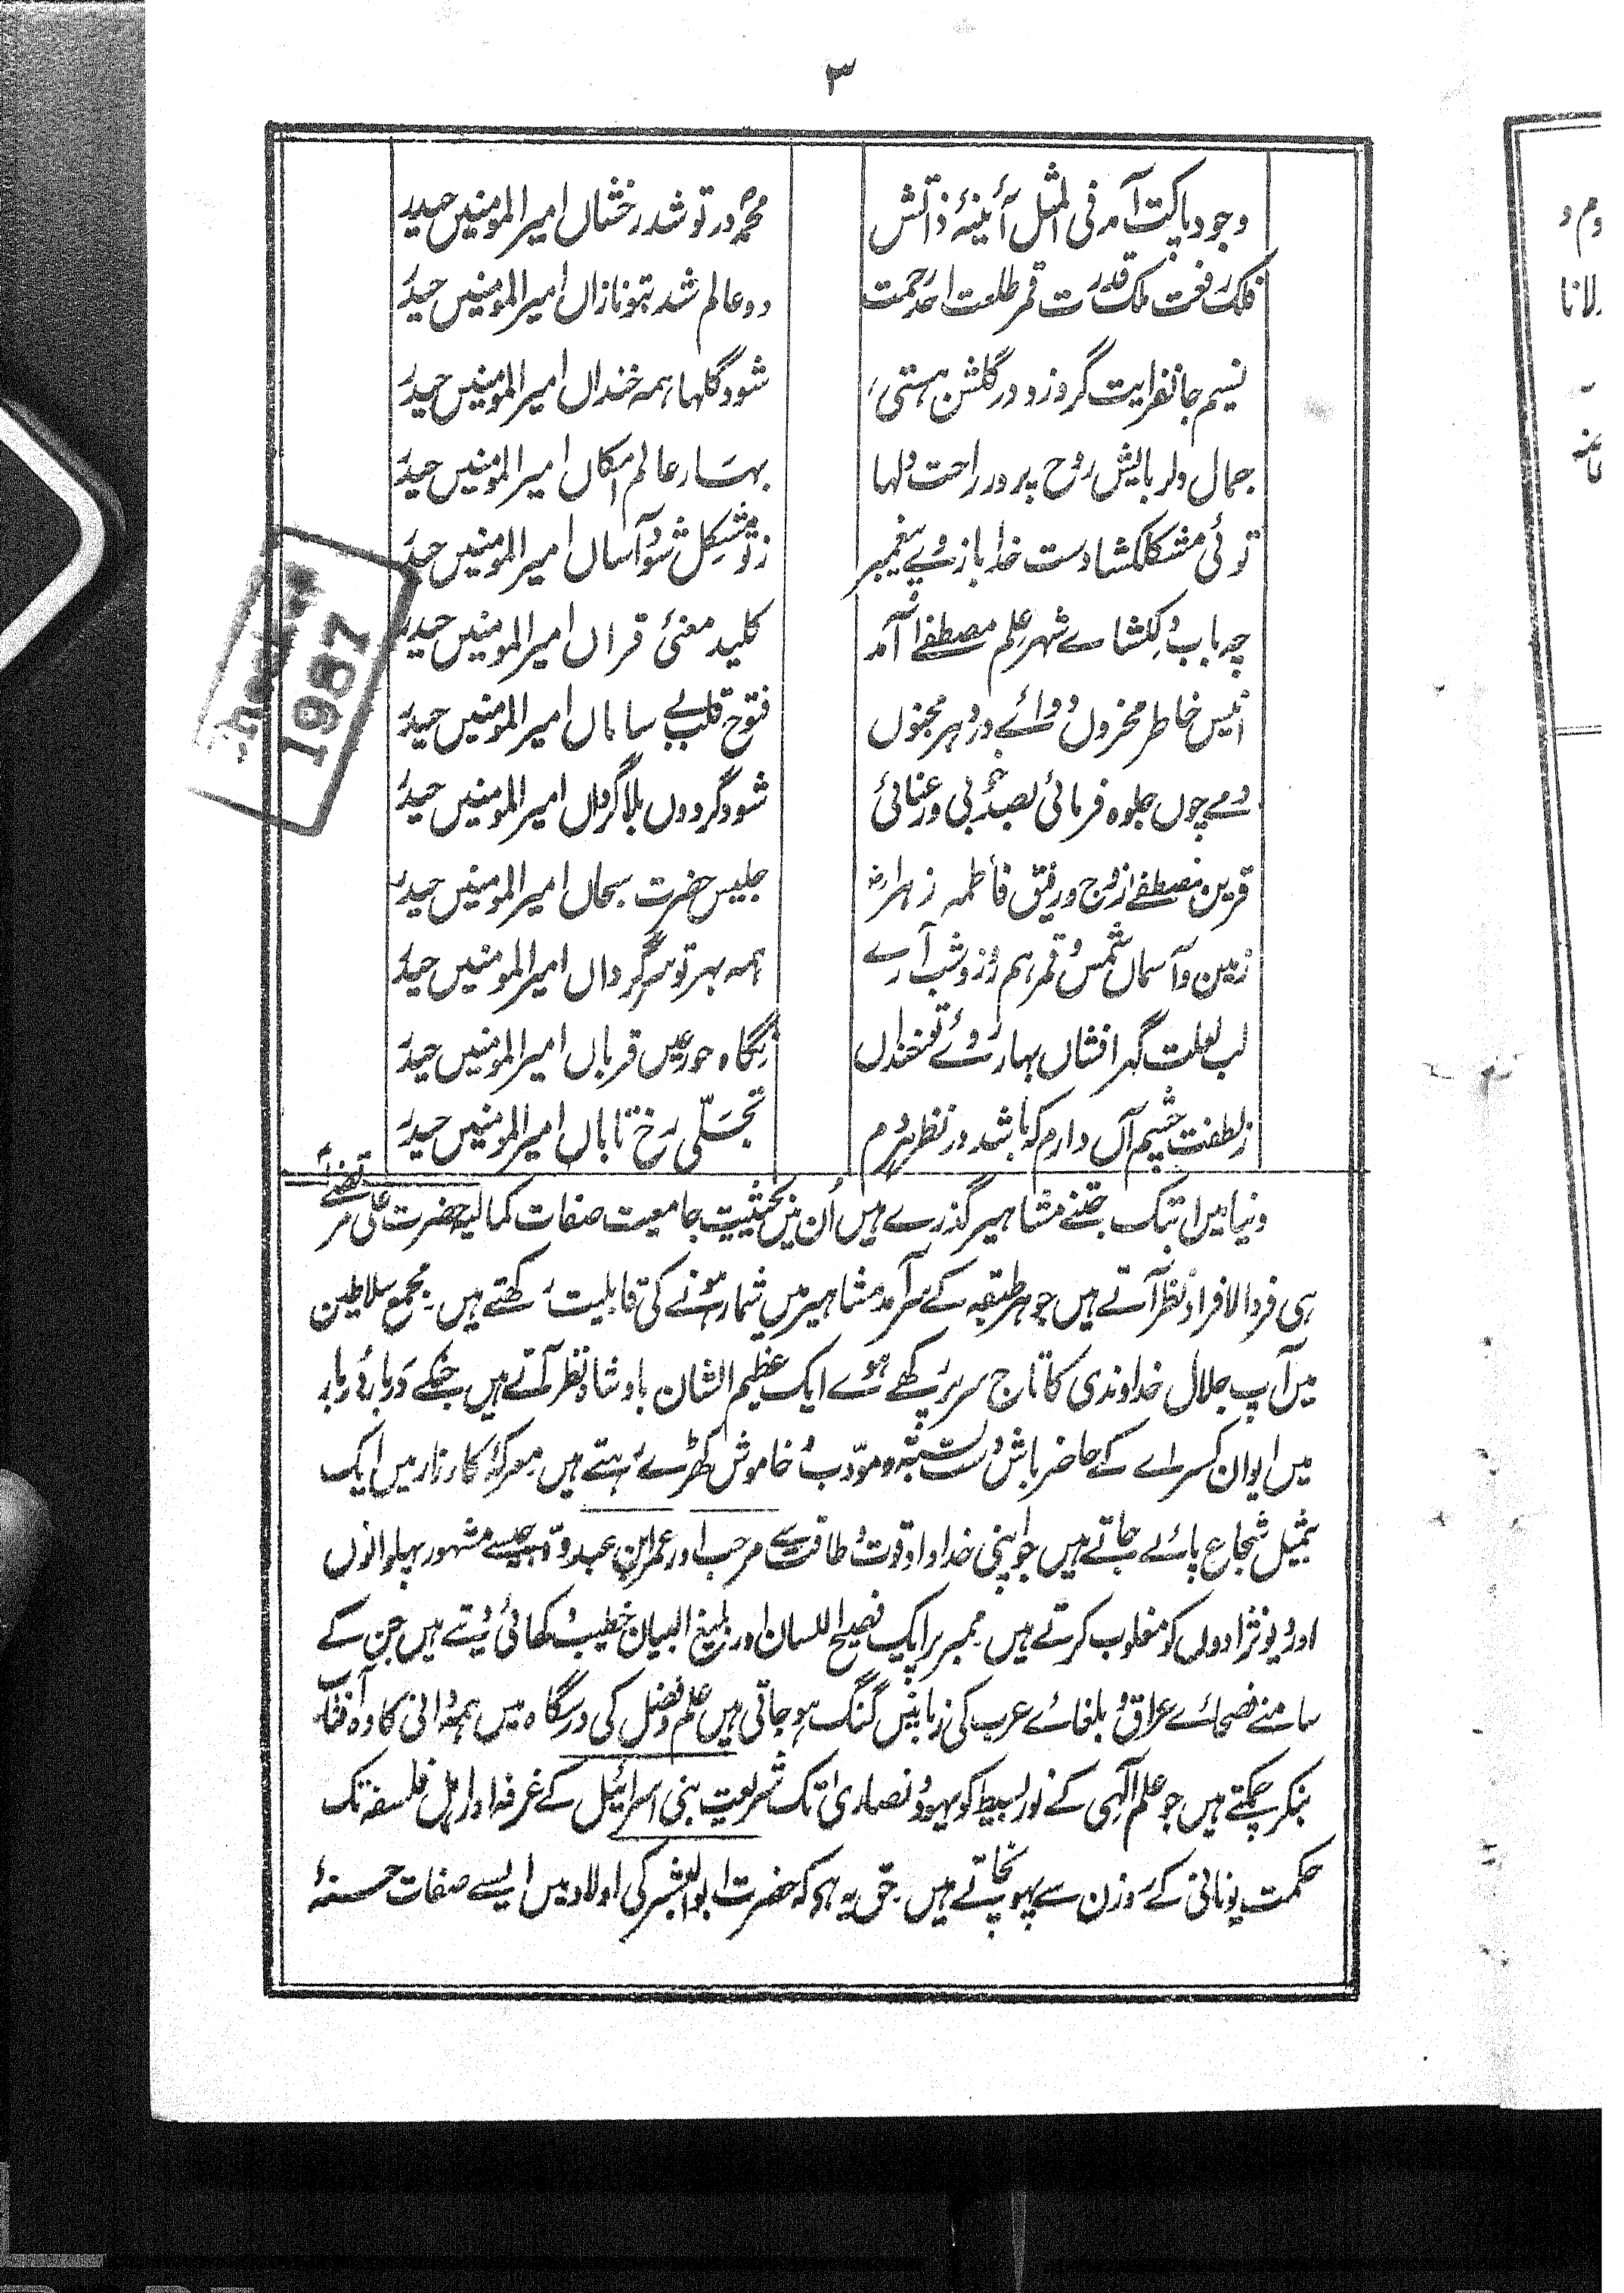 ۳
وجود پاکت آمد فی المثل آئینۂ ذاتش محمدؐ در تو شد رخشاں امیرالمومنیں حیدرؑ
فلک رفعت ملک قدرت قمر طلعت احد رحمت دو عالم شد بتو نازاں امیرالمومنیں حیدرؑ
نسیم جانفزایت گر وزد در گلشن ہستی شود گلہا ہمہ خنداں امیرالمومنیں حیدرؑ
جمال دلربایش روح پرور راحت دلہا بہار عالم امکاں امیرالمومنیں حیدرؑ
توئی مشکلکشا دست خدا بازوے پیغمبر ز تو مشکل شود آساں امیرالمومنیں حیدرؑ
چہ باب دلکشاے شہر علم مصطفےٰ آمد کلید معنیٔ قرآں امیرالمومنیں حیدرؑ
انیس خاطر محزوں دوائے درد ہر مجنوں فتوح قلب بے ساماں امیرالمومنیں حیدرؑ
دمے چوں جلوہ فرمائی بصد خوبی و رعنائی شود گردوں بلاگرداں امیرالمومنیں حیدرؑ
قرین مصطفےٰ زوج و رفیق فاطمہ زہراؓ جلیس حضرت سبحاں امیرالمومنیں حیدرؑ
زمین و آسماں شمس و قمر ہم روز و شب آرے ہمہ بہر تو سرگرداں امیرالمومنیں حیدرؑ
لب لعلت گہر افشاں بہار روے تو خنداں نگاہ حور عیں قرباں امیرالمومنیں حیدرؑ
ز لطفت چشم آں دارم کہ باشد در نظر ہر دم تجلّی رخ تاباں امیرالمومنیں حیدرؑ
دنیا میں ابتک جتنے مشاہیر گذرے ہیں اُن میں بحیثیت جامعیت صفات کمالیہ حضرت علی مرتضےٰؑ
ہی فرد الافراد نظر آتے ہیں جو ہر طبقہ کے سرآمد مشاہیر میں شمار ہونے کی قابلیت رکھتے ہیں۔ مجمع سلاطین
میں آپ جلال خداوندی کا تاج سر پر رکھے ہوئے ایک عظیم الشان بادشاہ نظر آتے ہیں جنکے دربار دربار
میں ایوان کسراے کے حاضر باش دست بستہ و مودّب خاموش کھڑے رہتے ہیں۔ معرکۂ کارزار میں ایک
بیمثیل شجاع پائے جاتے ہیں جو اپنی خداداد قوت و طاقت سے مرحب اور عمر ابن عبد ودّ جیسے مشہور پہلوانوں
اور دیو نژادوں کو مغلوب کرتے ہیں۔ ممبر پر ایک فصیح اللسان اور بلیغ البیان خطیب دکھائی دیتے ہیں جن کے
سامنے فصحائے عراق و بلغائے عرب کی زبانیں گنگ ہو جاتی ہیں علم و فضل کی درسگاہ میں ہمہ دانی کا وہ آفتاب
بنکر چمکتے ہیں جو علم الٰہی کے نور بسیط کو یہود و نصاریٰ تک شریعت بنی اسرائیل کے غرفہ اور اہل فلسفہ تک
حکمت یونانی کے روزن سے پہونچاتے ہیں۔ حق یہ ہی کہ حضرت ابوالبشر کی اولاد میں ایسے صفات حسنۂ
1987